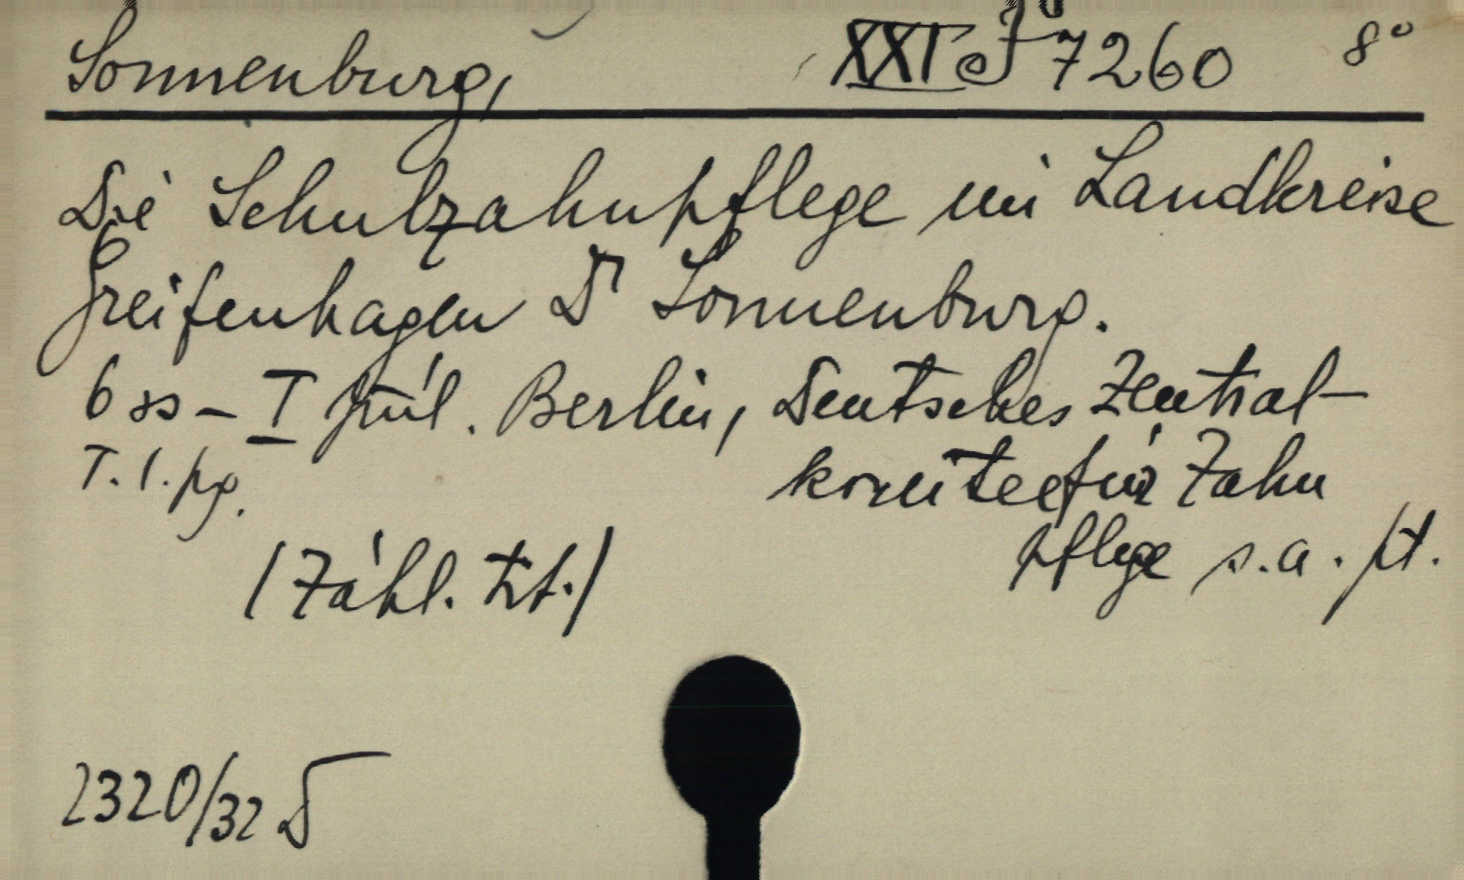 Sonnenburg, XXI J 7260 8°
Die Schulzahnpflege im Landkreise
Greifenhagen Dr Sonnenburg.
6 ss – I Berlin, Deutsches Zentral-
T. l. pg. komitee für Zahn
pflege s.a. /t.
(Záhl. tit.)
2320/32 D